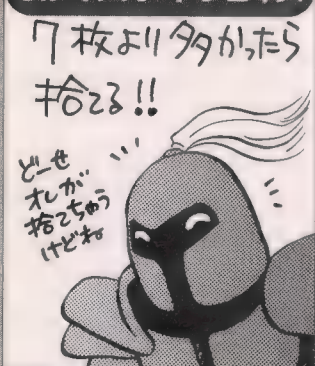 7枚より多かったら
捨てる!!
どーせ
オレが
捨てちゃう
けどね